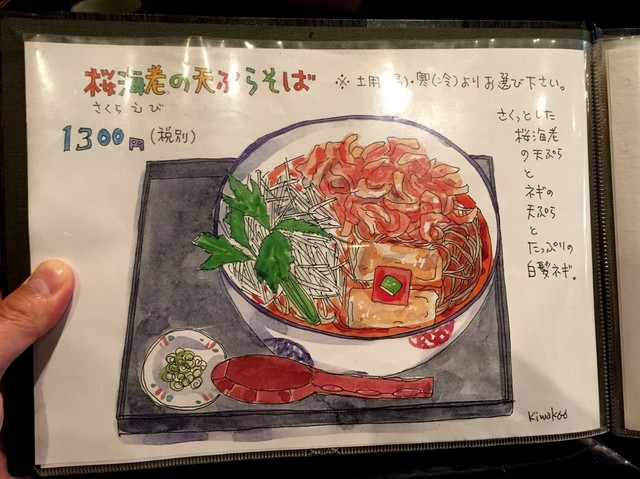 桜海老の天ぷらそば
さくらえび
※
(冷)よりお選び下さい。
1300円(税別)
さくっとした
桜海老
の天ぷら
と
ネギの
天ぷら
と
たっぷりの
白髪ネギ。
Kiwakoo